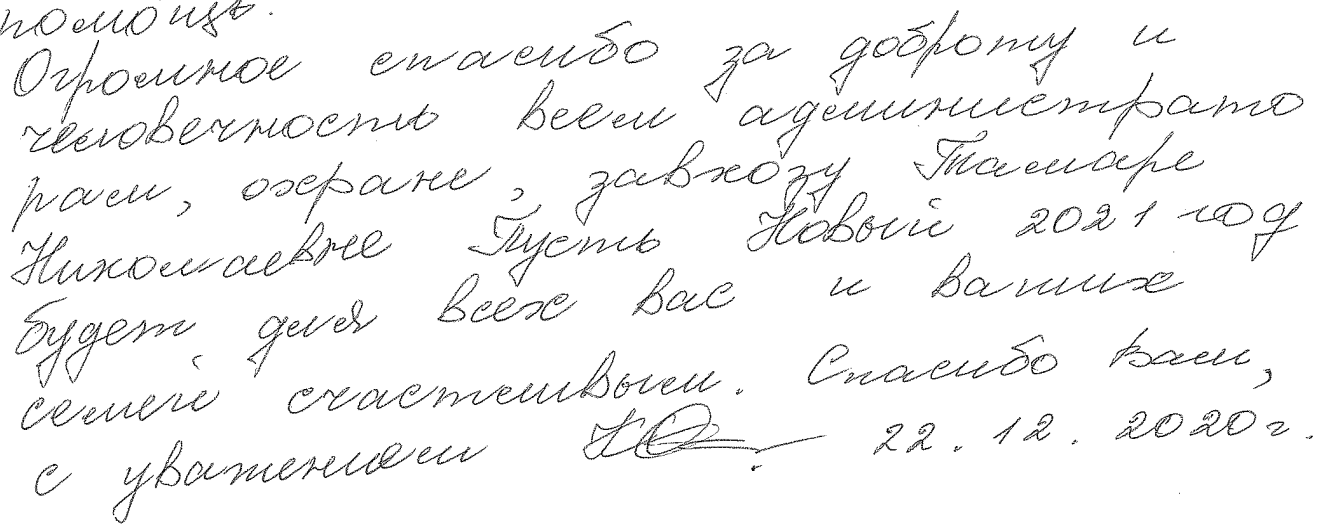 помощь.
Огромное спасибо за доброту и
человечность всем администрато
рам, охране, завхозу Тамаре
Николаевне Пусть Новый 2021 год
будет для всех вас и ваших
семей счастливым. Спасибо вам,
с уважением 22.12.2020г.